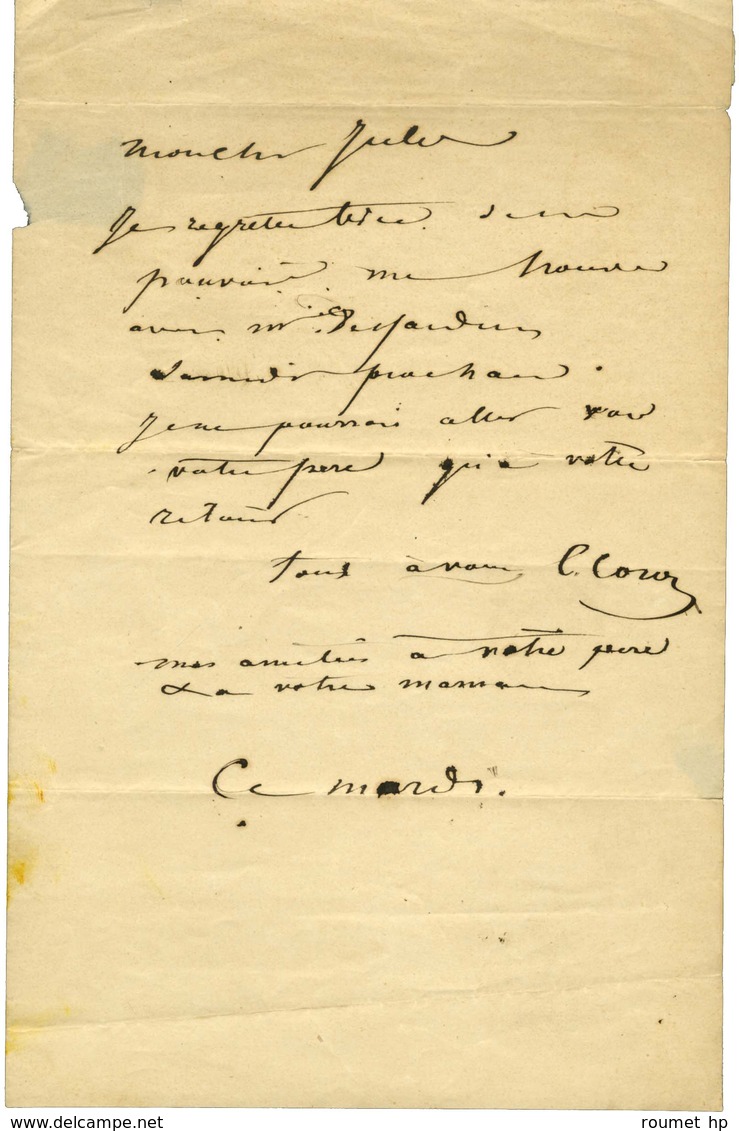 Mon cher Jules
Je regrette bien de ne
pouvoir me trouver
avec Mr Desjardins
Samedi prochain.
Je ne pourrai aller voir
votre père qu'à votre
retour
tout à vous C. Corot
mes amitiés à votre père
& à votre maman
Ce mardi.
www.delcampe.net
roumet hp